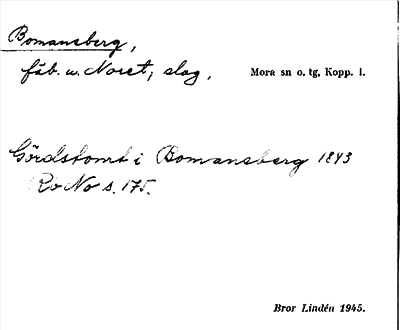 Bomansberg,
fäb. u. Noret, slog,
Mora sn o. tg, Kopp. l.
Gårdstomt i Bomansberg 1843
Ro No s. 175.
Bror Lindén 1945.